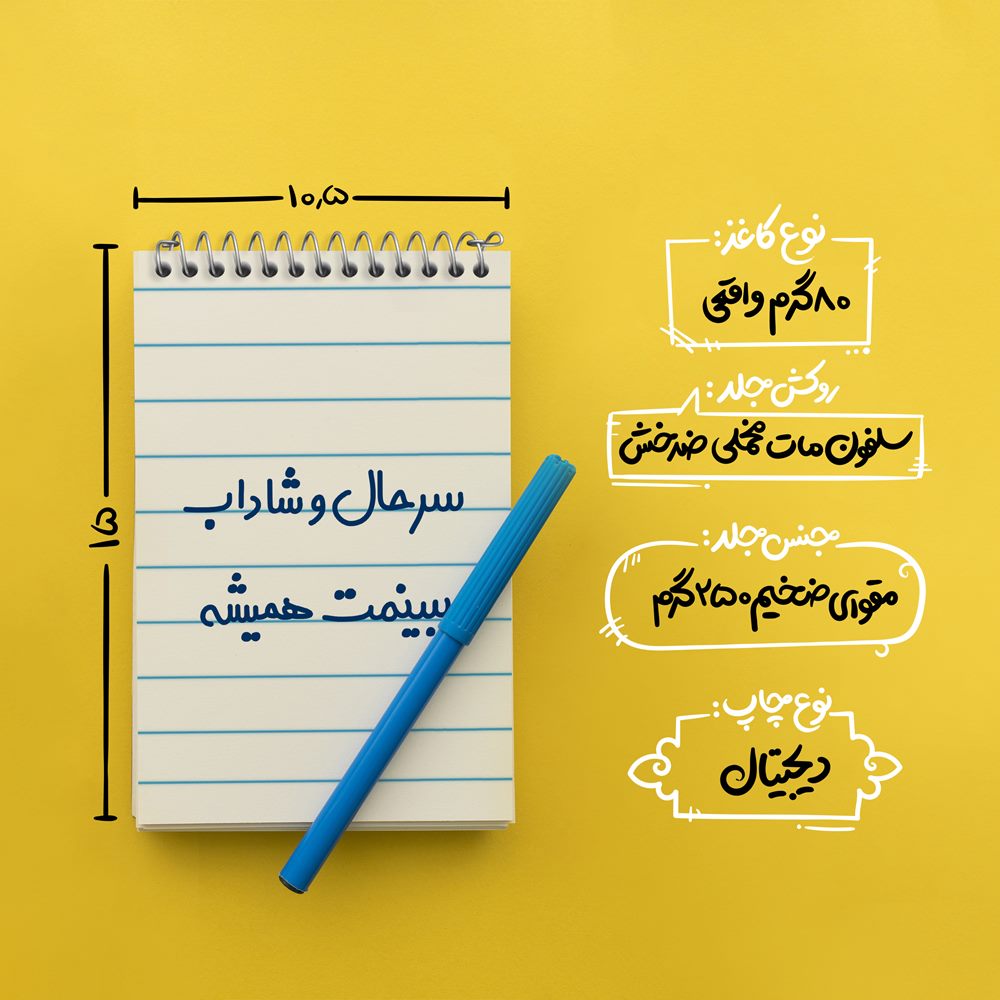 ۱۰٫۵
۱۵
سرحال و شاداب
ببینمت همیشه
نوع کاغذ:
۸۰گرم واقعی
روکش جلد:
سلفون مات مخملی ضدخش
جنس جلد:
مقوای ضخیم ۲۵۰گرم
نوع چاپ:
دیجیتال